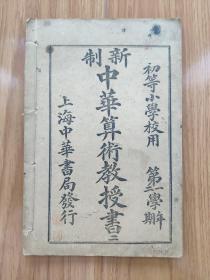 初等小學校用
第一學年
期
新制
中華算術教授書二
上海中華書局發行